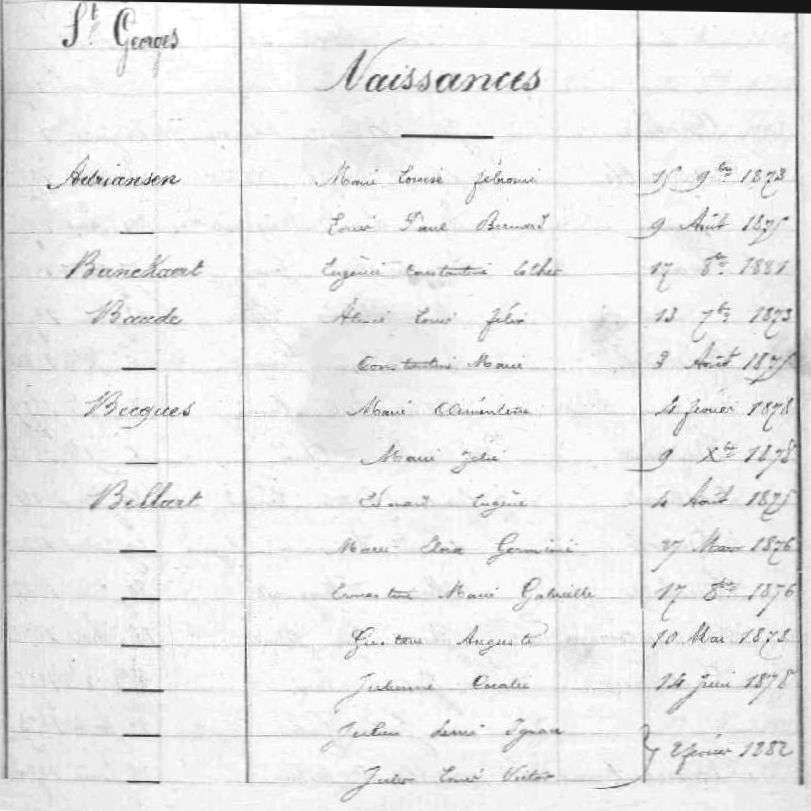 St Georges
Naissances
Adriansen Marie Louise 15 9bre 1873
— Louis Paul Bernard 9 Août 1875
Banckaert Eugénie Constantine 17 8bre 1881
Baude Louis Félix 13 7bre 1873
— Constantine Marie 3 Août 1875
Becques Marie Clémentine 4 février 1878
— Marie Julie 9 Xbre 1878
Bellart Edouard Eugène 4 Août 1875
— Marie Germinie 27 Mars 1876
— Ernestine Marie Gabrielle 17 8bre 1876
— Gustave Auguste 10 Mai 1878
— Julienne 14 Juin 1878
— Ignace
— Jules Louis Victor 7 février 1882